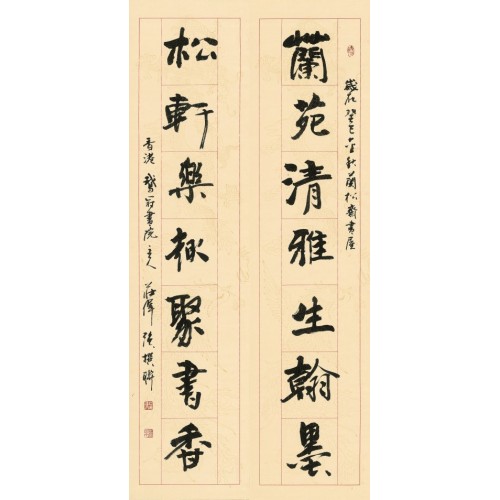 蘭苑清雅生翰墨
歲在癸巳金秋蘭松齋書屋
松軒樂趣聚書香
香港 書院主人 莊偉 撰聯